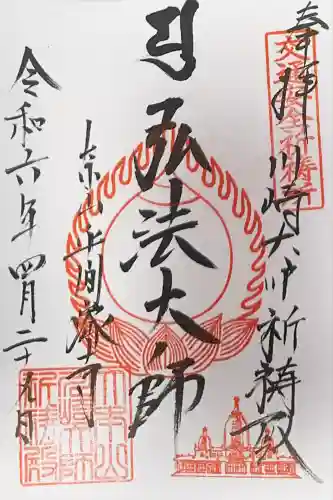 奉拝 川崎大師祈祷殿
交通安全祈祷所
弘法大師
大本山平間寺
令和六年四月二十九日
大本山川崎大師祈祷殿